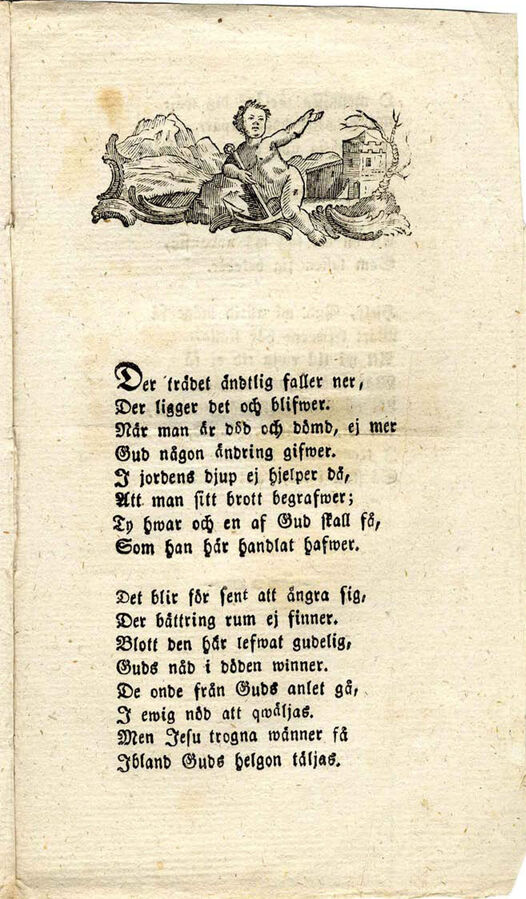 Der trädet ändtlig faller ner,
Der ligger det och blifwer.
När man är död och dömd, ej mer
Gud någon ändring gifwer.
I jordens djup ej hjelper då,
Att man sitt brott begrafwer;
Ty hwar och en af Gud skall få,
Som han här handlat hafwer.

Det blir för sent att ångra sig,
Der bättring rum ej finner.
Blott den här lefwat gudelig,
Guds nåd i döden winner.
De onde från Guds anlet gå,
I ewig nöd att qwäljas.
Men Jesu trogna wänner få
Ibland Guds helgon täljas.